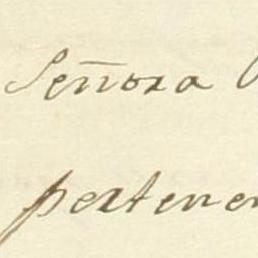 Señora
pertene